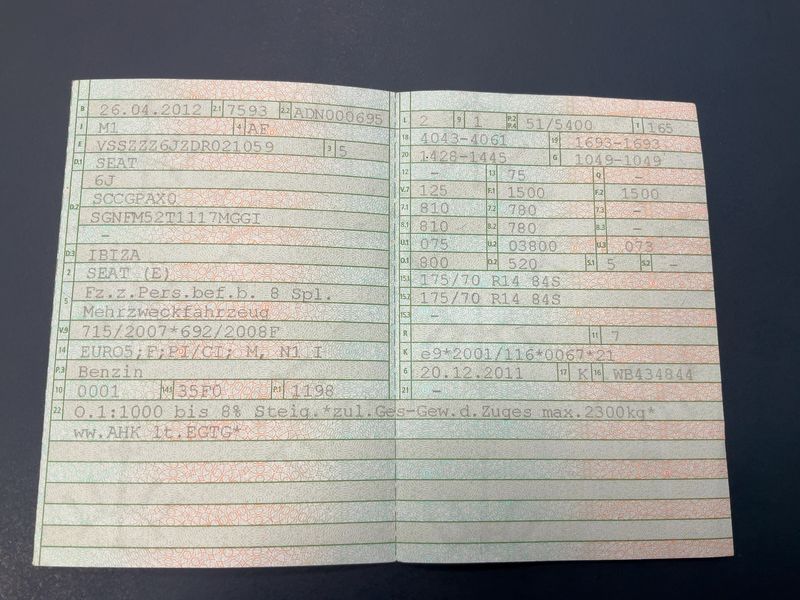 B 26.04.2012 2.1 7593 2.2 ADN000695
J M1 4 AF
E VSSZZZ6JZDR021059 3 5
D.1 SEAT
6J
D.2 SCCGPAX0
SGNFM52T1117MGGI
-
D.3 IBIZA
2 SEAT (E)
5 Fz.z.Pers.bef.b. 8 Spl.
Mehrzweckfahrzeug
V.9 715/2007*692/2008F
14 EURO5;F;PI/CI; M, N1 I
P.3 Benzin
10 0001 14.1 35F0 P.1 1198
22 O.1:1000 bis 8% Steig.*zul.Ges-Gew.d.Zuges max.2300kg*
ww.AHK lt.EGTG*
L 2 9 1 P.2 P.4 51/5400 T 165
18 4043-4061 19 1693-1693
20 1428-1445 G 1049-1049
12 - 13 75 Q -
V.7 125 F.1 1500 F.2 1500
7.1 810 7.2 780 7.3 -
8.1 810 8.2 780 8.3 -
U.1 075 U.2 03800 U.3 073
O.1 800 O.2 520 S.1 5 S.2 -
15.1 175/70 R14 84S
15.2 175/70 R14 84S
15.3 -
R 11 7
K e9*2001/116*0067*21
6 20.12.2011 17 K 16 WB434844
21 -